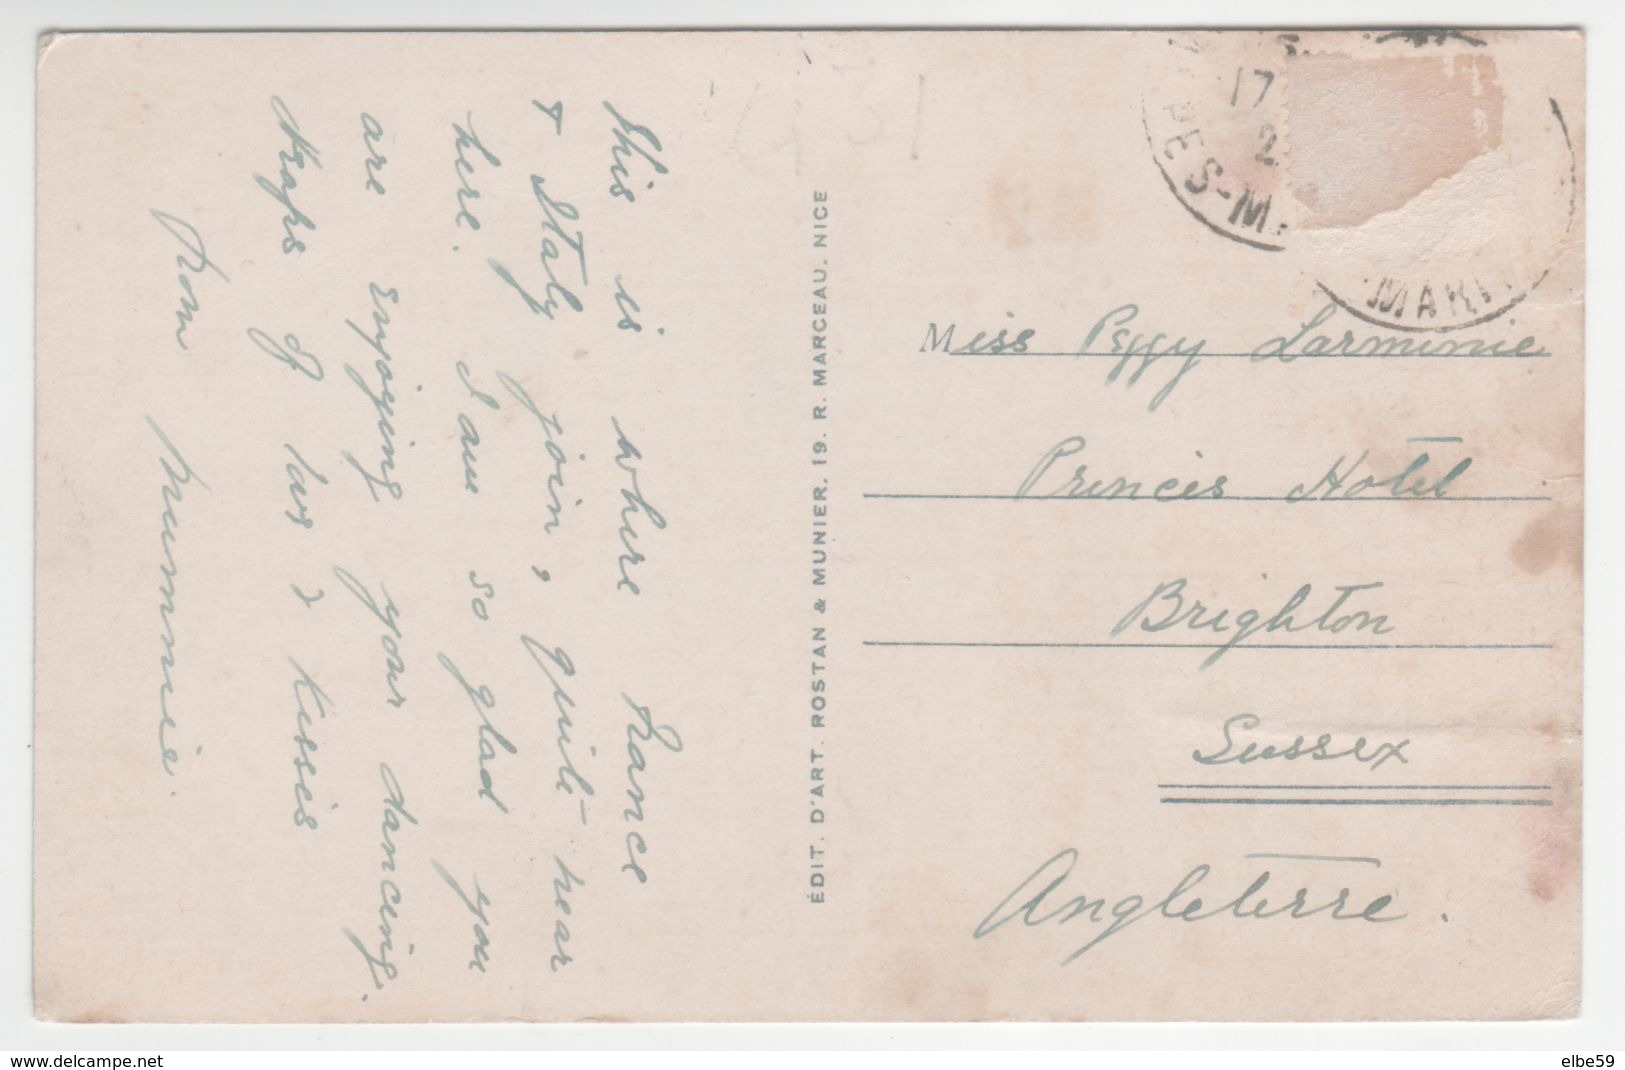 This is where France
+ Italy join, quite near
here. I am so glad you
are enjoying your dancing.
Heaps of love & kisses
from Mummie.
ÉDIT. D'ART. ROSTAN & MUNIER, 19. R. MARCEAU, NICE
17
2
PES-M
MARI
Miss Peggy Larminie
Princes Hotel
Brighton
Sussex
Angleterre.
delcampe.net
elbe59